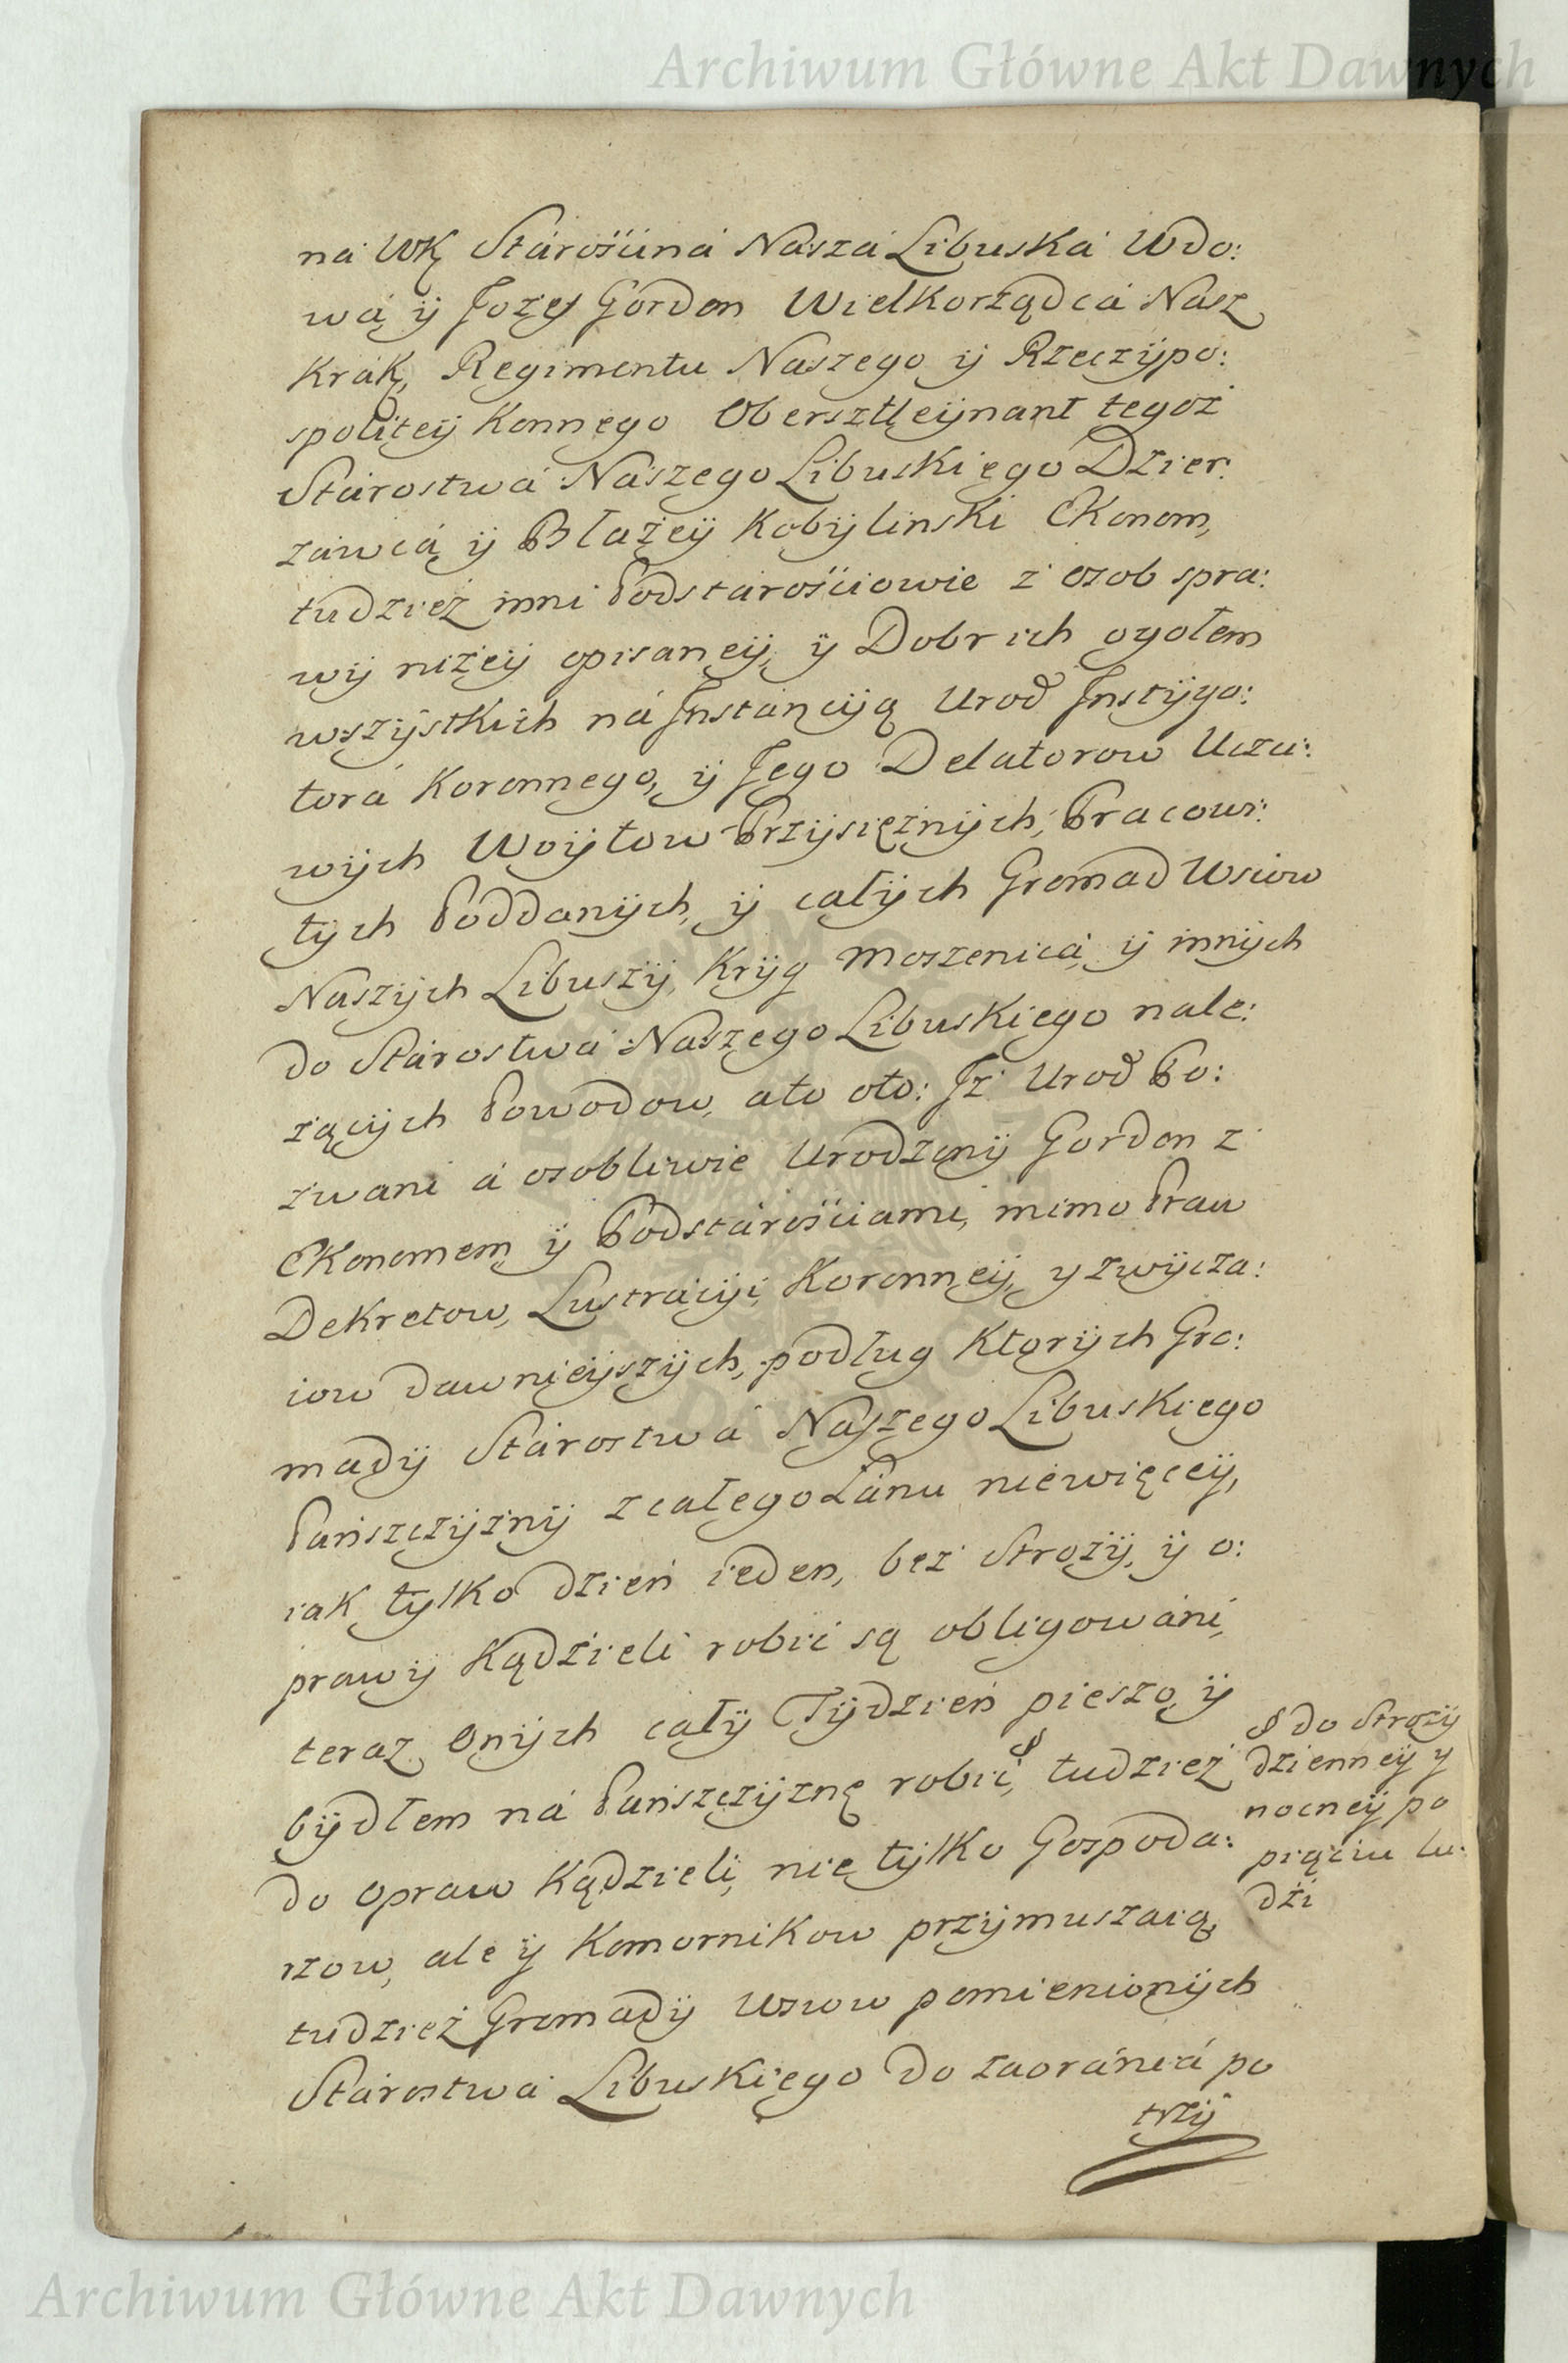 Archiwum Główne Akt Dawnych
ná Wk Stárośćina Naszá Libuská Wdo:
wá ÿ Jozef Gordon Wielkorządcá Nasz
Krák, Regimentu Naszego ÿ Rzeczÿpo:
spoliteÿ Konnego Obersztleÿnant tegoż
Stárostwá Nászego Libuskiego Dzier:
záwcá ÿ Błażeÿ Kobÿlinski Ekonom,
tudzież inni Podstárośćiowie z osob spra:
wÿ niżeÿ opisaneÿ, ÿ Dobr ich ogołem
wszÿstkich ná Jnstáncÿą Urod Jnstÿgo:
torá Koronnego, ÿ Jego Delatorow Uczci:
wÿch Woÿtow Przÿsiężnÿch, Pracowi:
tÿch Poddanÿch, ÿ całÿch Gromad Wsiow
Naszÿch Libuszÿ, Krÿg Moszenicá, ÿ innÿch
do Stárostwá Naszego Libuskiego nale:
żącÿch Powodow, ato oto: Jż Urod Po:
zwani á osobliwie Urodzonÿ Gordon z
Ekonomem ÿ Podstárośćiami, mimo Praw
Dekretow, Lustrácÿi Koronneÿ, y zwÿcza:
iow dawnieÿszÿch, podług Ktorÿch Gro:
madÿ Stárostwá Naszego Libuskiego
Pańszczÿznÿ z całego Łánu niewięceÿ,
iak tylko dzień ieden, bez Strożÿ, ÿ o:
prawÿ Kądzieli robić są obligowáni,
teraz Onÿch całÿ Tÿdzień pieszo, ÿ
bÿdłem ná Pańszczÿznę robić, tudzież
do opraw Kądzieli, nie tylko Gospoda:
rzow, ale ÿ Komornikow przÿmuszaią,
tudzież Gromadÿ Wsiow pomienionÿch
Stárostwá Libuskiego do zaoránia po
trzÿ
do Strożÿ
dzienneÿ y
nocneÿ po
pięciu lu:
dzi
Archiwum Główne Akt Dawnych